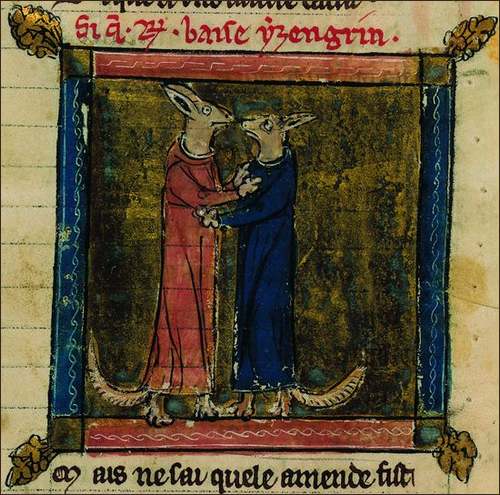 Si q̄ · R · baise yzengrin ·
M ais ne sai quele amende fist